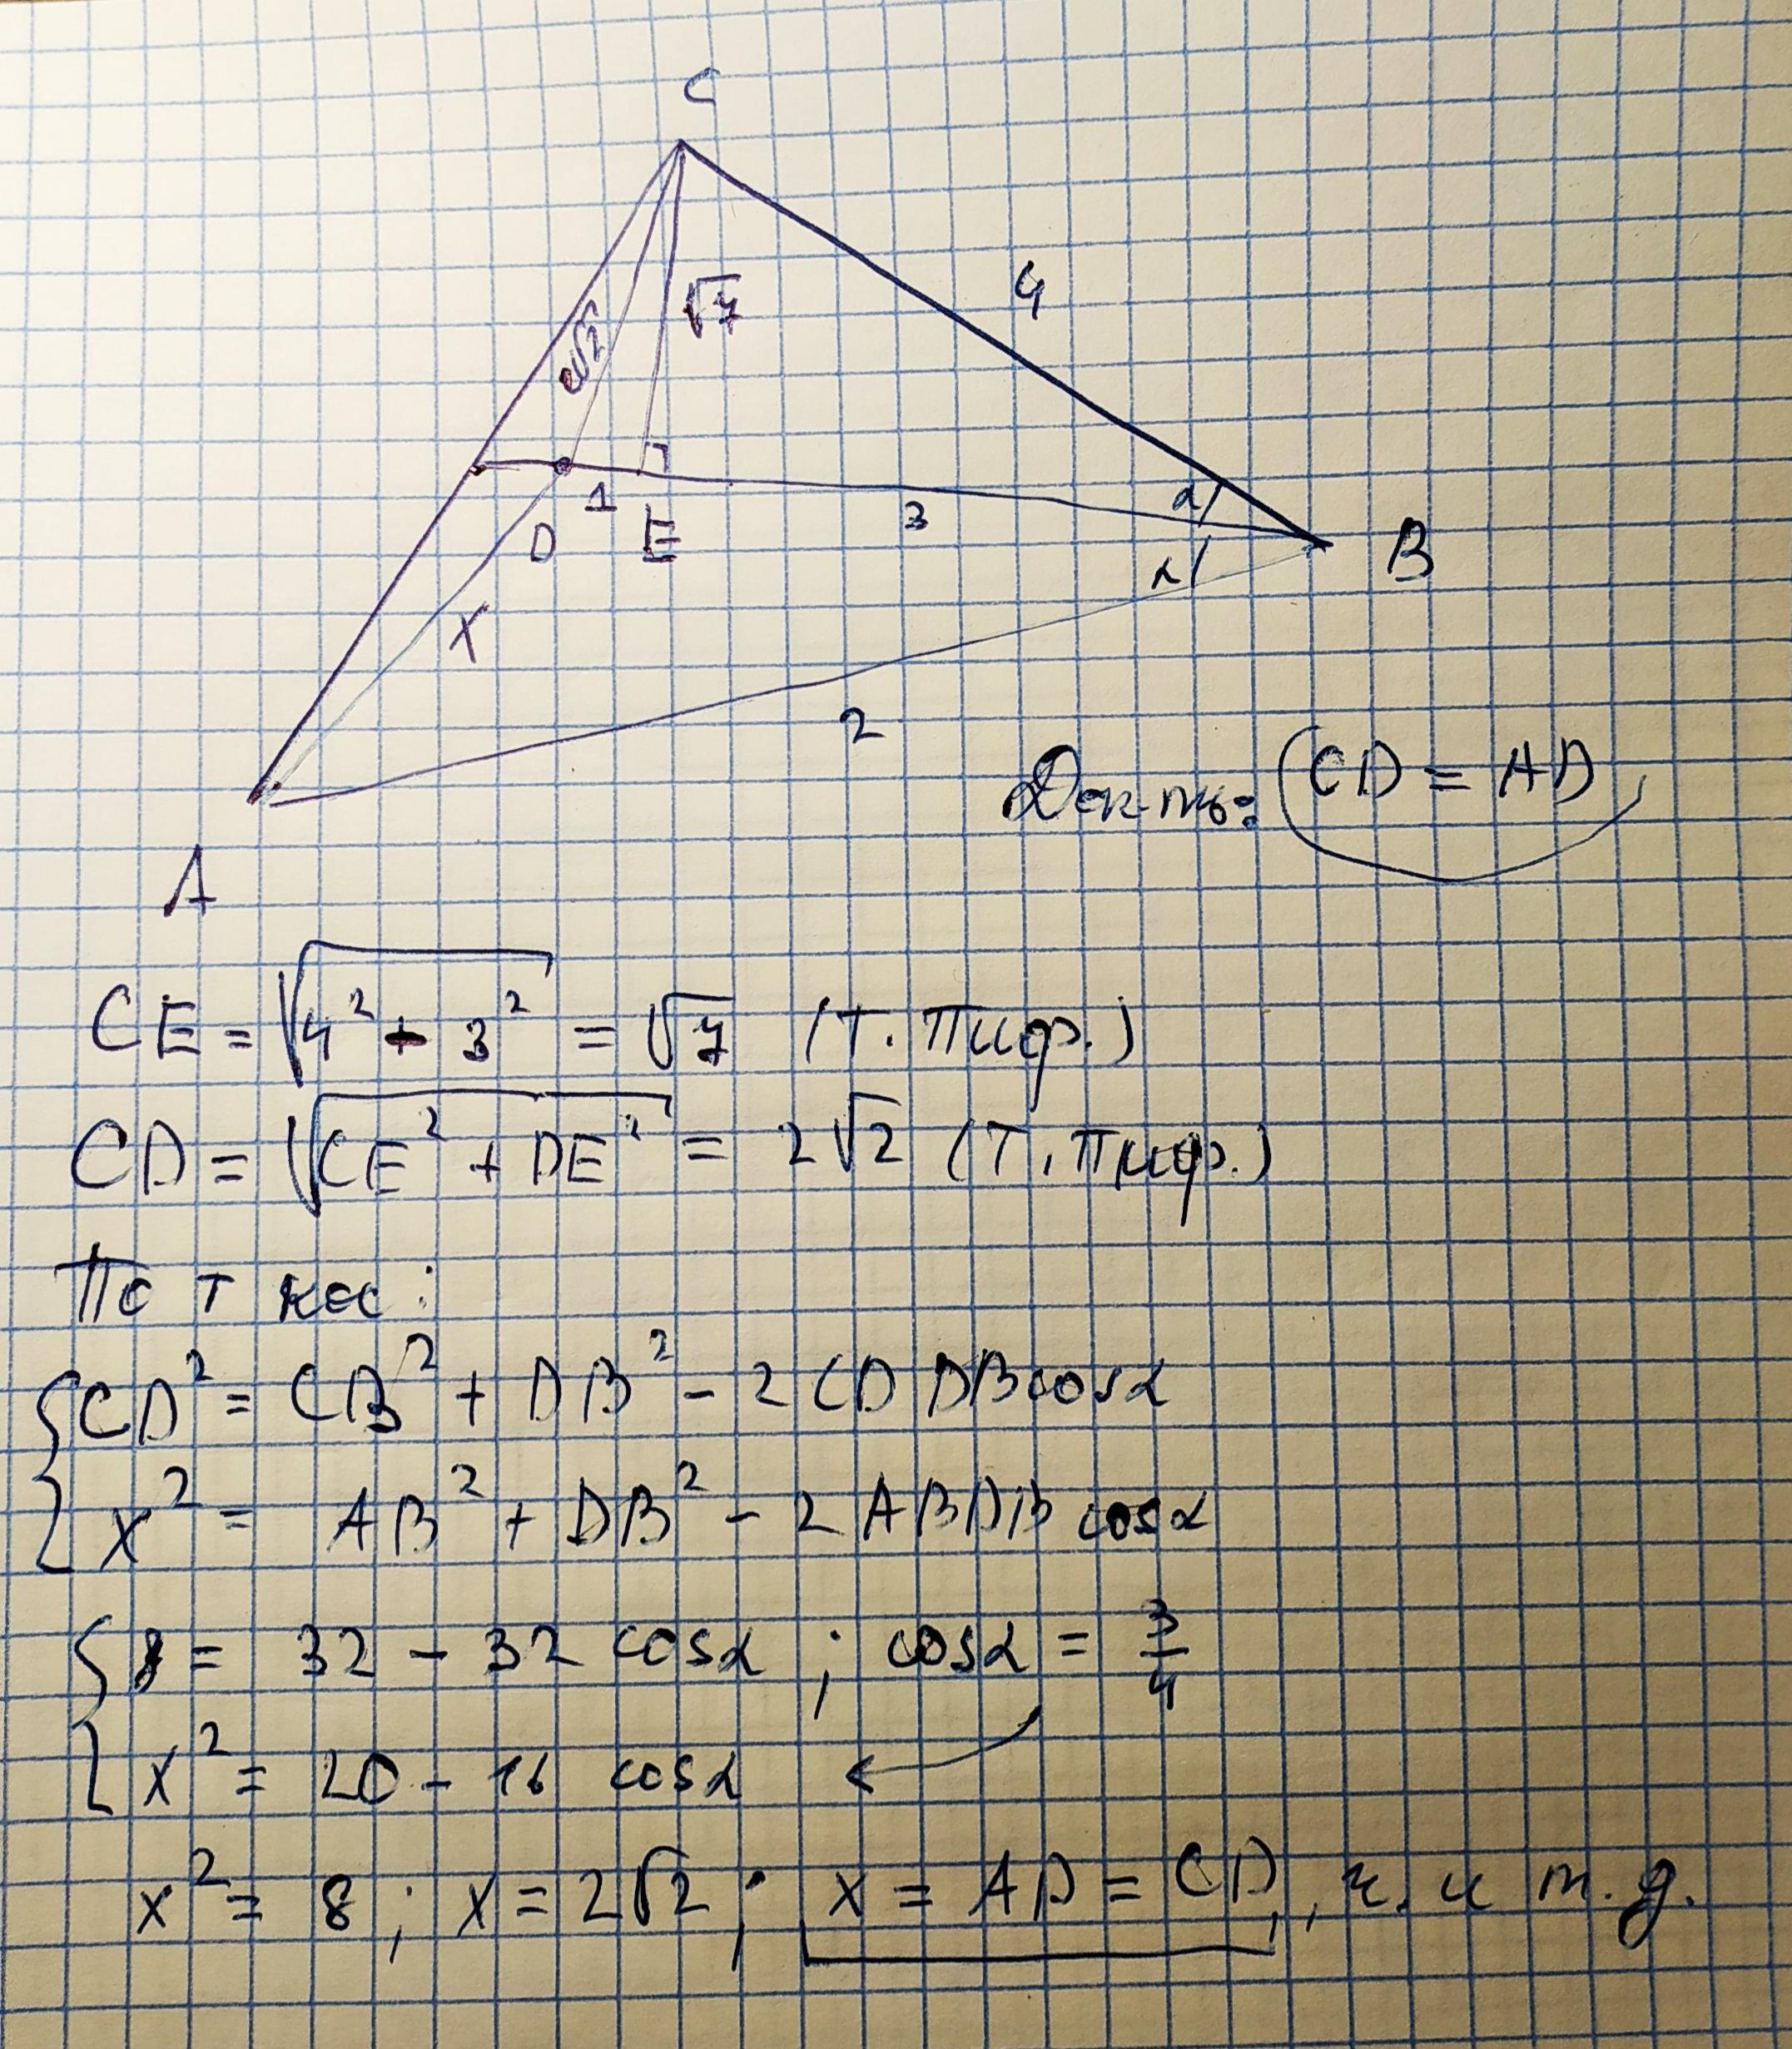 C
√7
4
2√2
α
1
3
D
E
B
α
x
2
Док-ть: CD = AD
A
CE = √(4² - 3²) = √7 (Т. Пиф.)
CD = √(CE² + DE²) = 2√2 (Т. Пиф.)
По т кос:
{ CD² = CB² + DB² - 2 CD DB cosα
x² = AB² + DB² - 2 AB DB cosα
{ 8 = 32 - 32 cosα ; cosα = 3/4
x² = 20 - 16 cosα ←
x² = 8 ; x = 2√2 ; x = AD = CD, ч. и т. д.